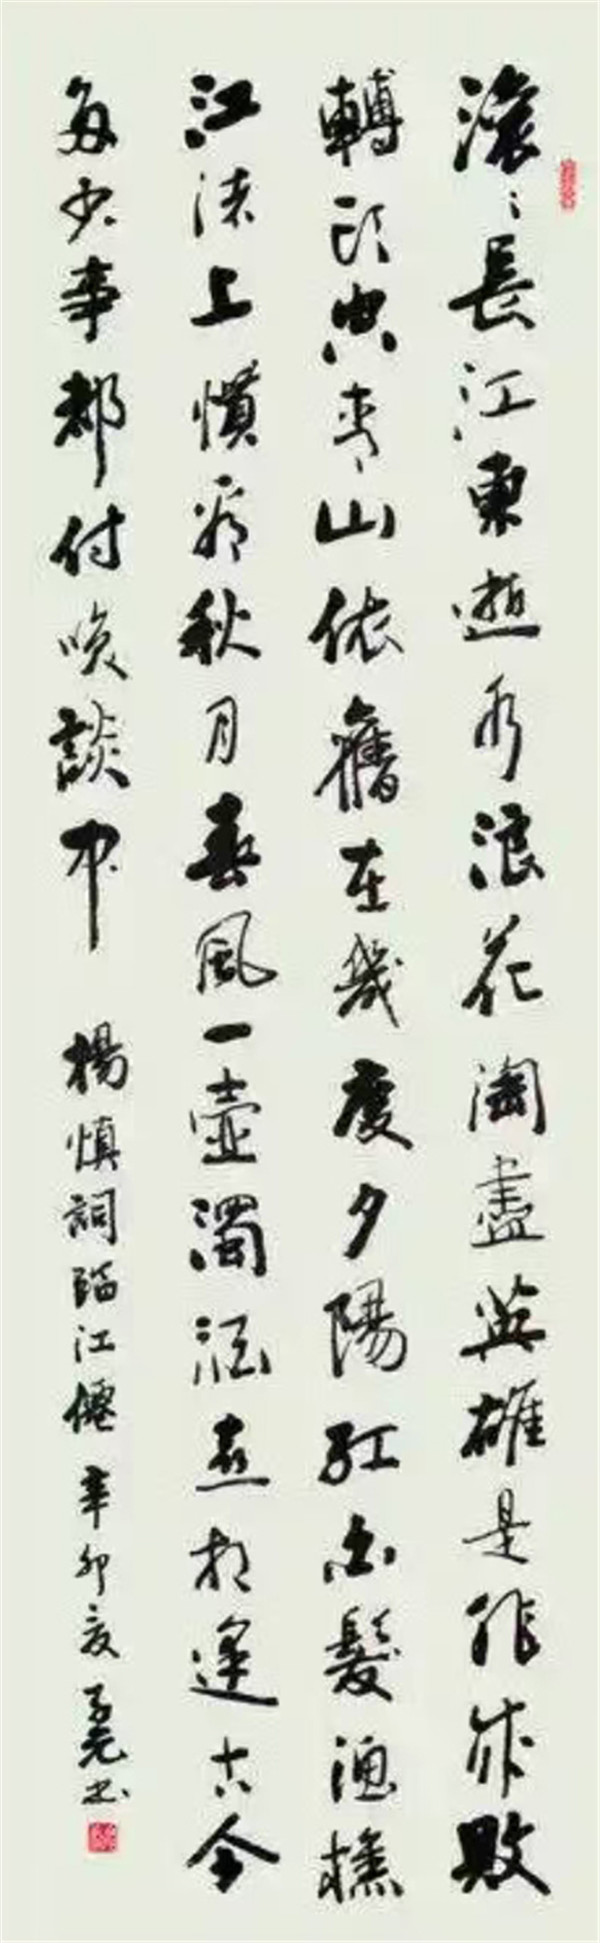 滚〻長江東逝水浪花淘盡英雄是非成敗
轉頭空青山依舊在幾度夕陽紅白髮漁樵
江渚上慣看秋月春風一壺濁酒喜相逢古今
多少事都付笑談中 楊慎詞臨江僊 辛卯夏